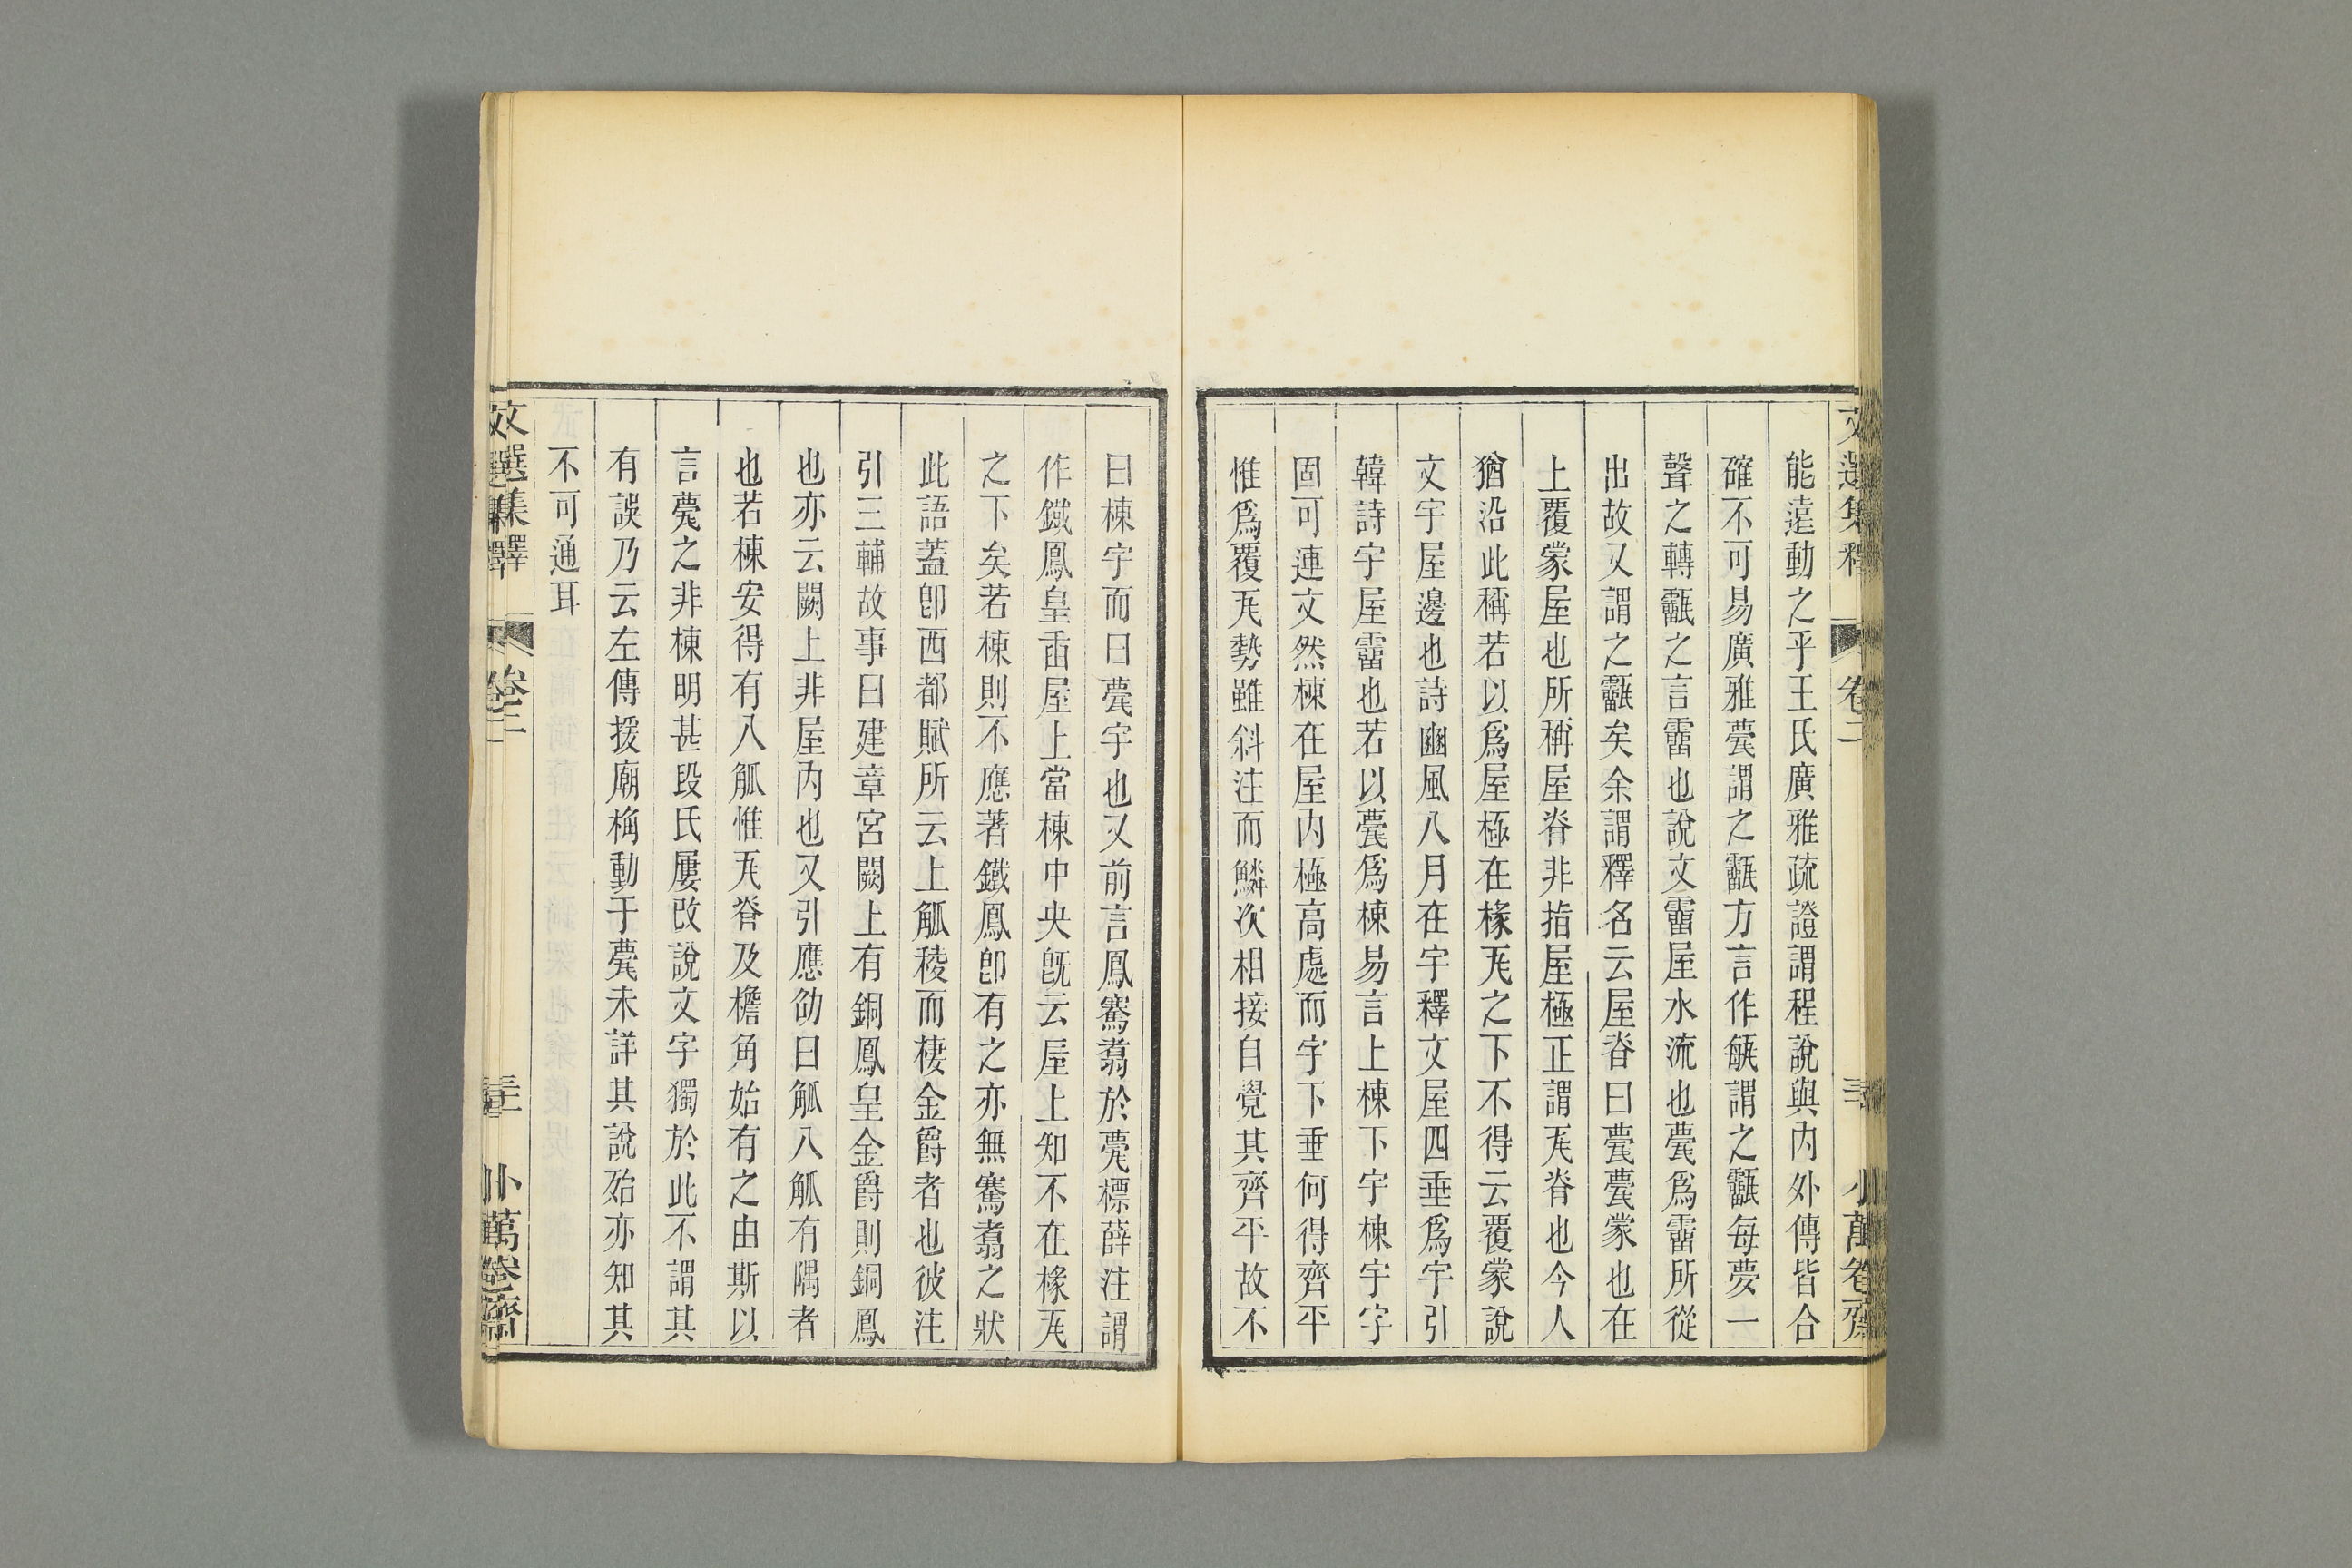 能遠動之乎王氏廣雅疏證謂程說與内外傳皆合
確不可易廣雅甍謂之甋方言作㼺謂之甋每夢一
聲之轉甋之言霤也說文霤屋水流也甍爲霤所從
出故又謂之甋矣余謂釋名云屋脊曰甍甍蒙也在
上覆蒙屋也所稱屋脊非指屋極正謂瓦脊也今人
猶沿此稱若以爲屋極在椽瓦之下不得云覆蒙說
文宇屋邊也詩豳風八月在宇釋文屋四垂爲宇引
韓詩宇屋霤也若以甍爲棟易言上棟下宇棟宇字
固可連文然棟在屋内極高處而宇下垂何得齊平
惟爲覆瓦勢雖斜注而鱗次相接自覺其齊平故不
曰棟宇而曰甍宇也又前言鳳騫翥於甍標薛注謂
作鐵鳳皇臿屋上當棟中央旣云屋上知不在椽瓦
之下矣若棟則不應著鐵鳳卽有之亦無騫翥之狀
此語蓋卽西都賦所云上觚稜而棲金爵者也彼注
引三輔故事曰建章宮闕上有銅鳳皇金爵則銅鳳
也亦云闕上非屋内也又引應劭曰觚八觚有隅者
也若棟安得有八觚惟瓦脊及檐角始有之由斯以
言甍之非棟明甚段氏屢改說文字獨於此不謂其
有誤乃云左傳援廟桷動于甍未詳其說殆亦知其
不可通耳
文選集釋 卷二 小萬卷齋